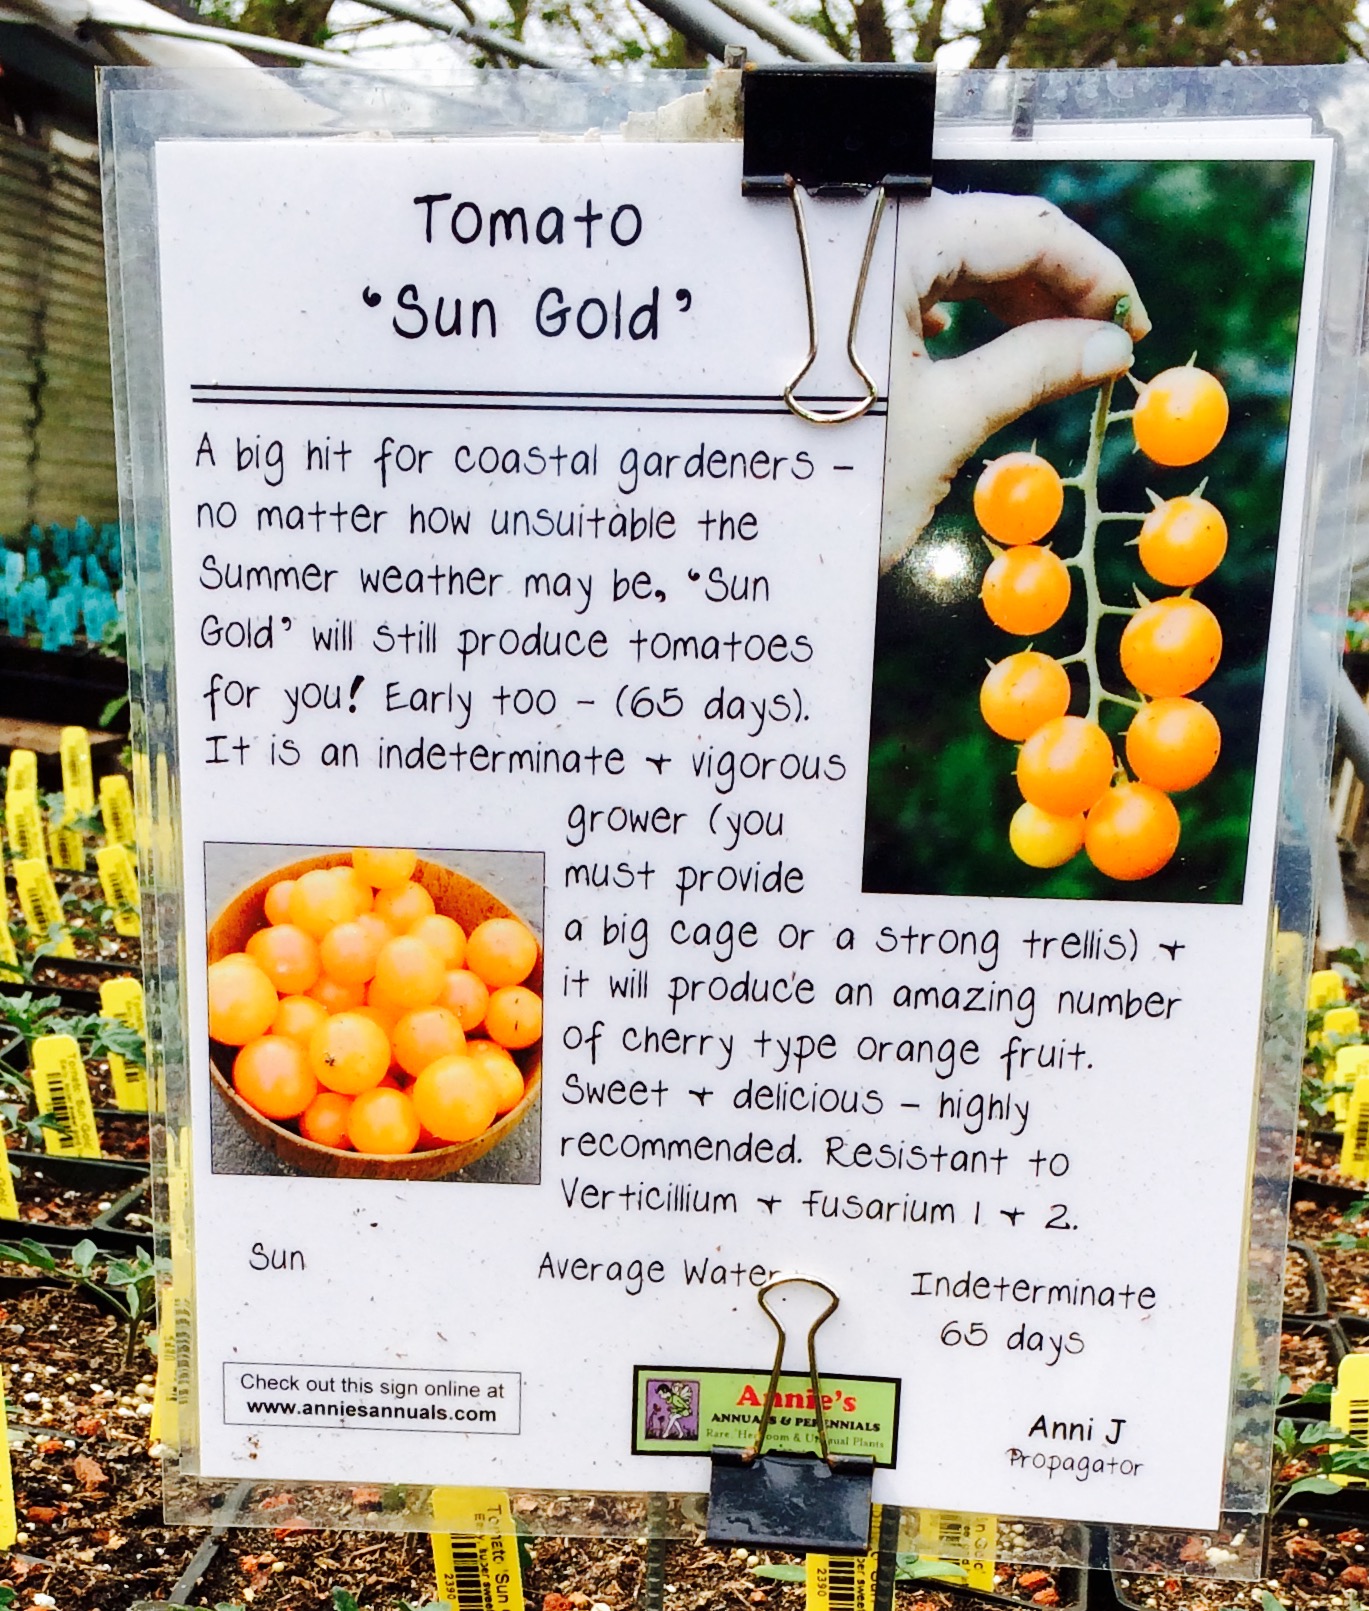 Tomato
‘Sun Gold’
A big hit for coastal gardeners –
no matter how unsuitable the
Summer weather may be, ‘Sun
Gold’ will still produce tomatoes
for you! Early too – (65 days).
It is an indeterminate + vigorous
grower (you
must provide
a big cage or a strong trellis) +
it will produce an amazing number
of cherry type orange fruit.
Sweet + delicious – highly
recommended. Resistant to
Verticillium + fusarium 1 + 2.
Sun
Average Water
Indeterminate
65 days
Check out this sign online at
www.anniesannuals.com
Annie's
ANNUALS & PERENNIALS
Rare, Heirloom & Unusual Plants
Anni J
Propagator
2390
2390